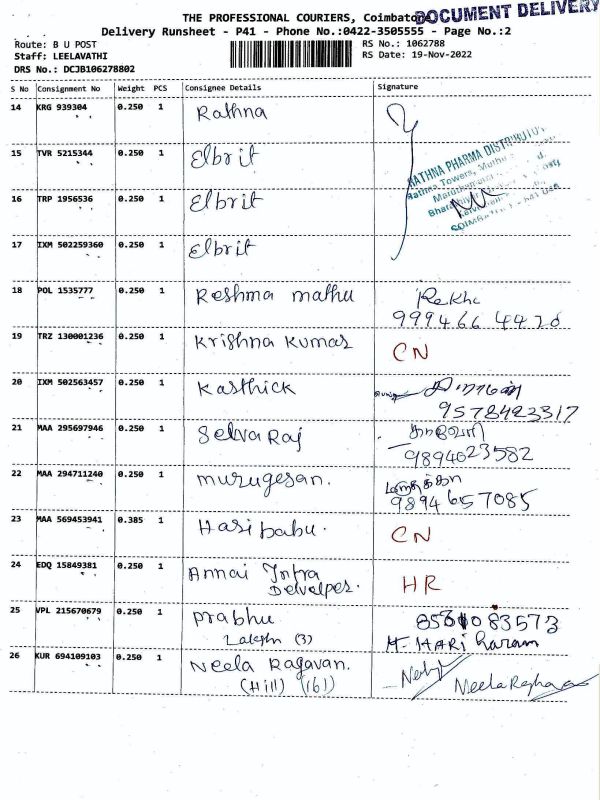 THE PROFESSIONAL COURIERS, Coimbatore
DOCUMENT DELIVERY
Delivery Runsheet - P41 - Phone No.:0422-3505555 - Page No.:2
Route: B U POST
RS No.: 1062788
Staff: LEELAVATHI
RS Date: 19-Nov-2022
DRS No.: DCJB106278802
S No Consignment No Weight PCS Consignee Details Signature
14 KRG 939304 0.250 1 Rathna
RATHNA PHARMA DISTRIBUTO
Rathna Towers,
15 TVR 5215344 0.250 1 Elbrit
16 TRP 1956536 0.250 1 Elbrit
17 IXM 502259360 0.250 1 Elbrit
18 POL 1535777 0.250 1 Reshma mathu Rekha
999466 4420
19 TRZ 130001236 0.250 1 Krishna Kumar CN
20 IXM 502563457 0.250 1 Karthick
9578423317
21 MAA 295697946 0.250 1 Selva Raj
9894023582
22 MAA 294711240 0.250 1 murugesan.
9894657085
23 MAA 569453941 0.385 1 Hari babu. CN
24 EDQ 15849381 0.250 1 Annai Infra HR
Devalpes.
25 VPL 215670679 0.250 1 prabhu
Lakshn (3) M. HARi haram
26 KUR 694109103 0.250 1 Neela Ragavan.
(Hill) (161) Neela Ragha